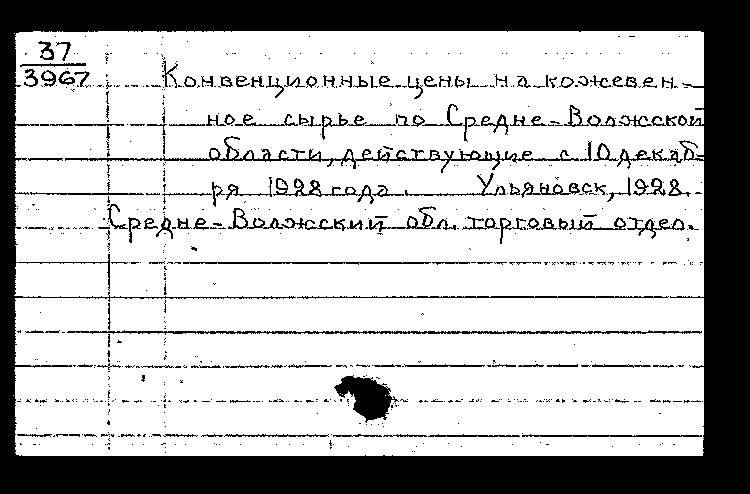 37
3967
Конвенционные цены на кожевен-
ное сырье по Средне-Волжской
области, действующие с 10 декаб-
ря 1928 года. Ульяновск, 1928.
Средне-Волжский обл. торговый отдел.